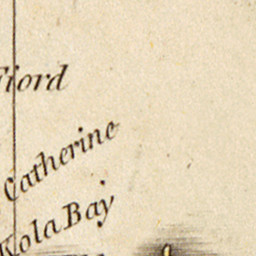 Fiord
Catherine
Kola Bay